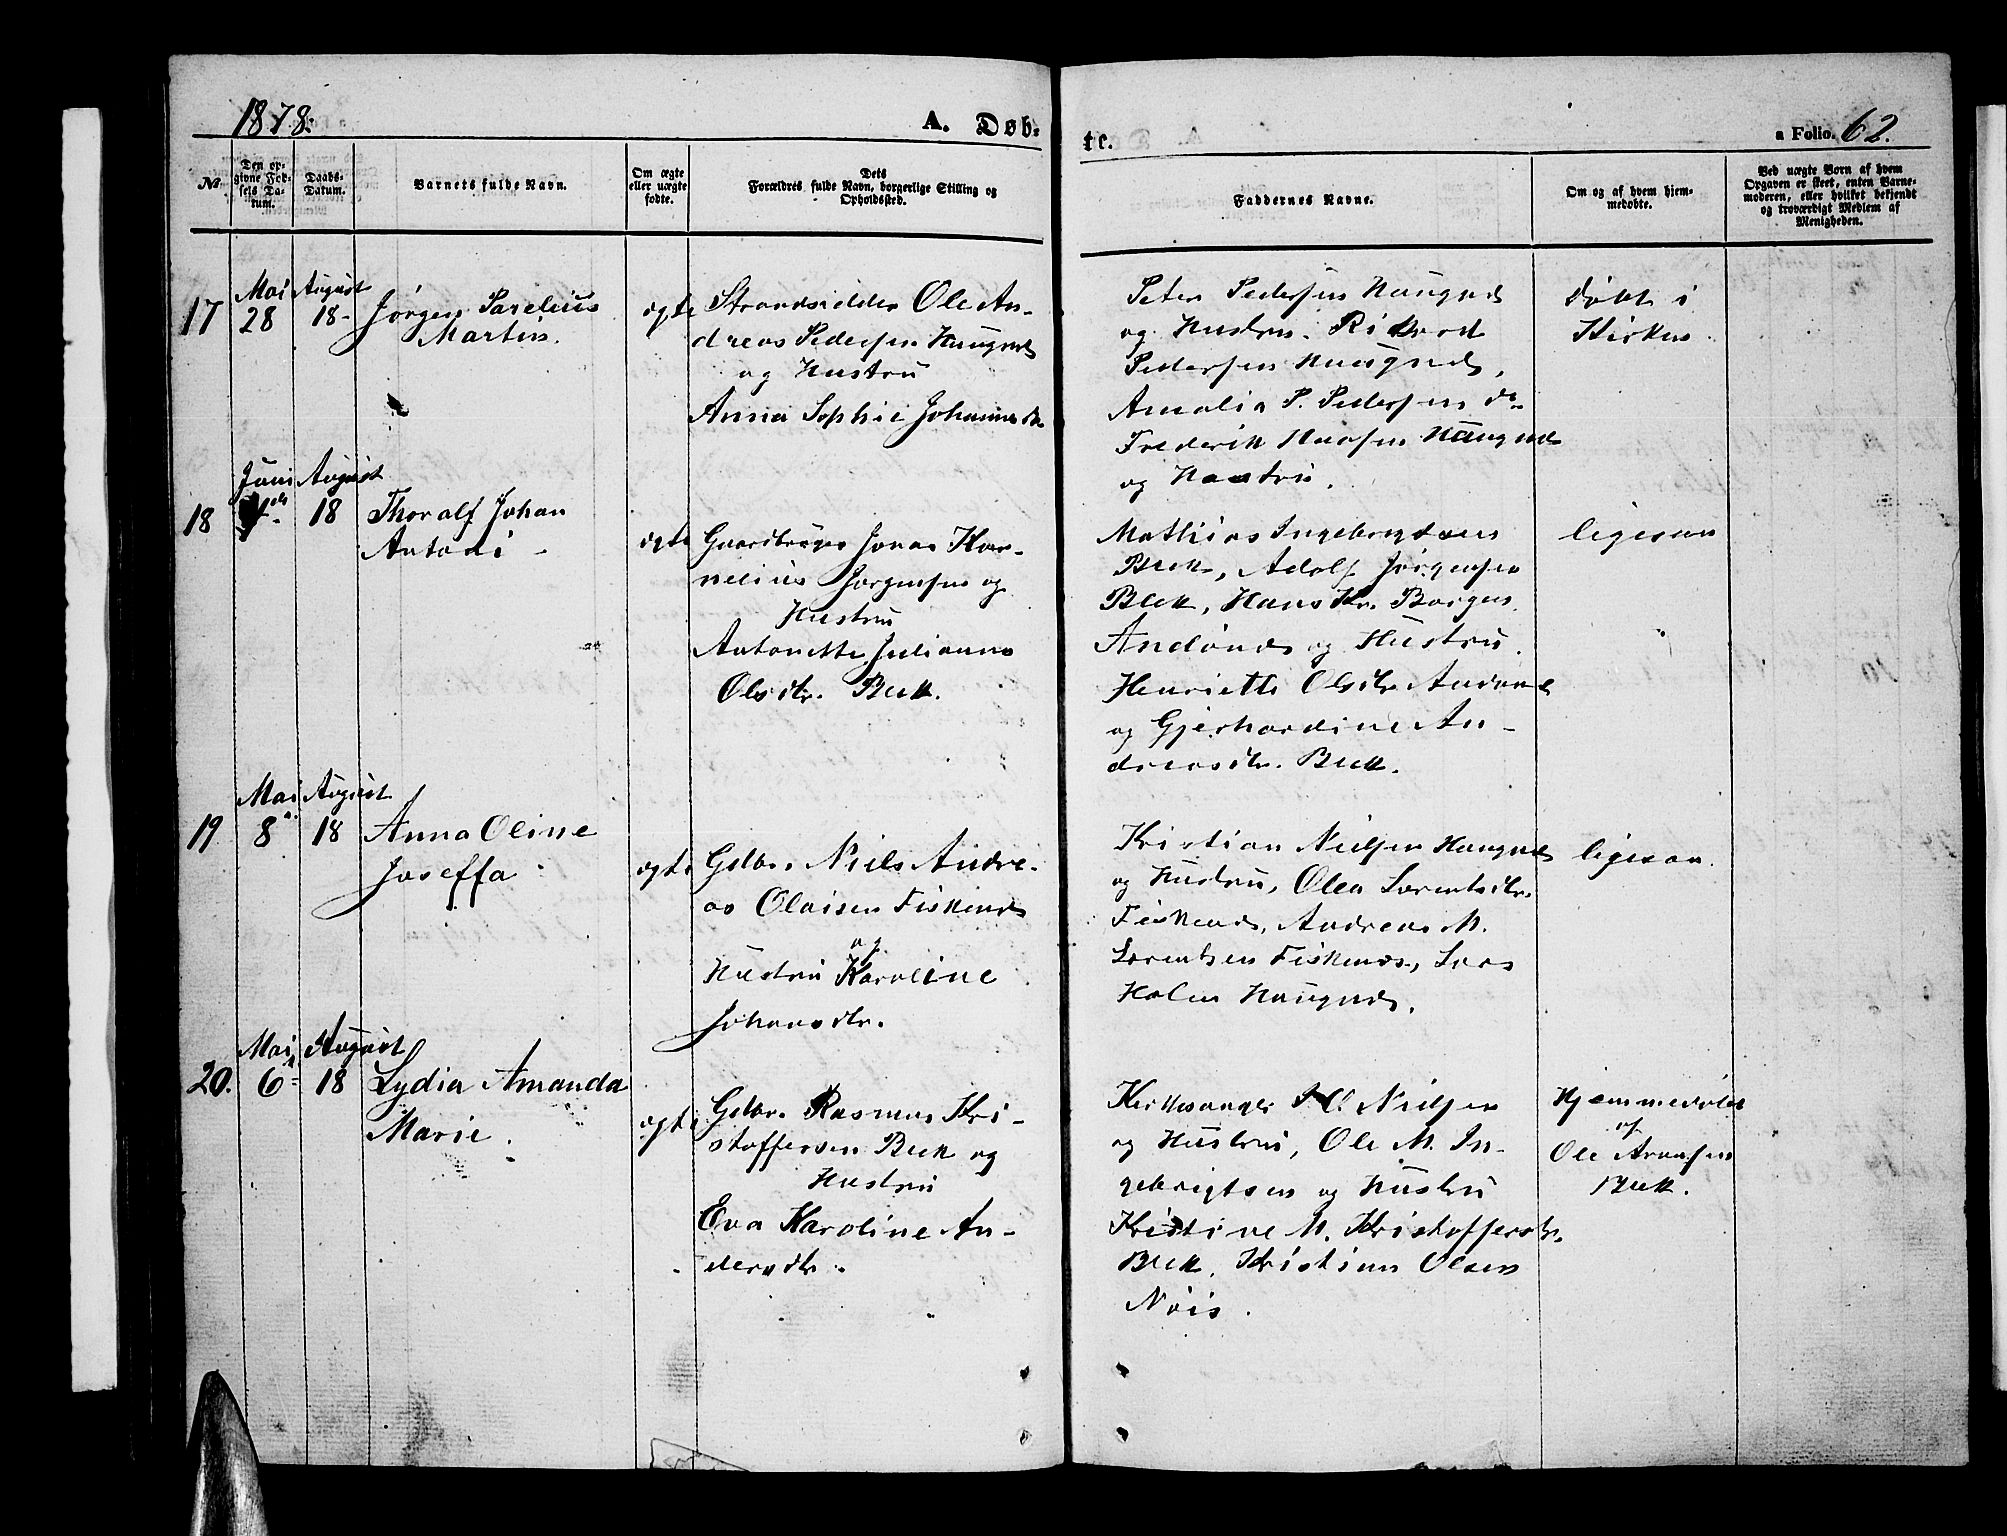 1878.
A. Døb-
te.
a Folio. 62.
№
Den op-
givne Fød-
sels Da-
tum.
Daabs-
Datum.
Barnets fulde Navn.
Om ægte
eller uægte
fødte.
Dets
Forældres fulde Navn, borgerlige Stilling og
Opholdssted.
Faddernes Navne.
Om og af hvem hjem-
medøbte.
Ved uægte Børn af hvem
Opgaven er skeet, enten Barne-
moderen, eller hvilket bekjendt
og troværdigt Medlem af
Menigheden.
17
Mai
28
August
18
Jørgen Parelius
Martin.
ægte
Strandsidder Ole An-
dreas Pedersen Haugnes
og Hustru
Anna Sophie Johannesdr
Peter Pedersen Haugnes
og Hustru. Rikard
Pedersen Haugnes,
Amalia P. Pedersen do
Frederik Hansen Haugnes
og Hustru.
døbt i
Kirken.
18
Juni
4de
August
18
Thoralf Johan
Antoni
ægte
Gaardbruger Jonas Kor-
nelius Jørgensen og
Hustru
Antonette Julianna
Olsdtr. Bek.
Mathias Ingebrigtsen
Bek, Adolf Jørgensen
Bek, Hans Kr. Borgen
Andønes og Hustru.
Henriette Olsdtr Andønes
og Gjerhardine An-
dreasdtr. Bek.
ligesaa
19
Mai
8
August
18
Anna Oline
Joseffa
ægte
Gdbr. Niels Andre-
as Olaisen Fiskenes
og
Hustru Karoline
Johansdtr.
Kristian Nielsen Haugnes
og Hustru, Olea Lorentsdtr.
Fiskenes, Andreas M.
Lorentsen Fiskenes, Lars
Holm Haugnes.
ligesaa.
20.
Mai
6
August
18
Lydia Amanda
Marie.
ægte
Gdbr. Rasmus Kri-
stoffersen Bek og
Hustru
Eva Karoline An-
dersdtr.
Kirkesanger Nielsen
og Hustru, Ole M. In-
gebrigtsen og Hustru
Kristine M. Kristoffersdtr.
Bek, Kristian Olsen
Nøis.
Hjemmedøbt
af
Ole Aronsen
Bek.